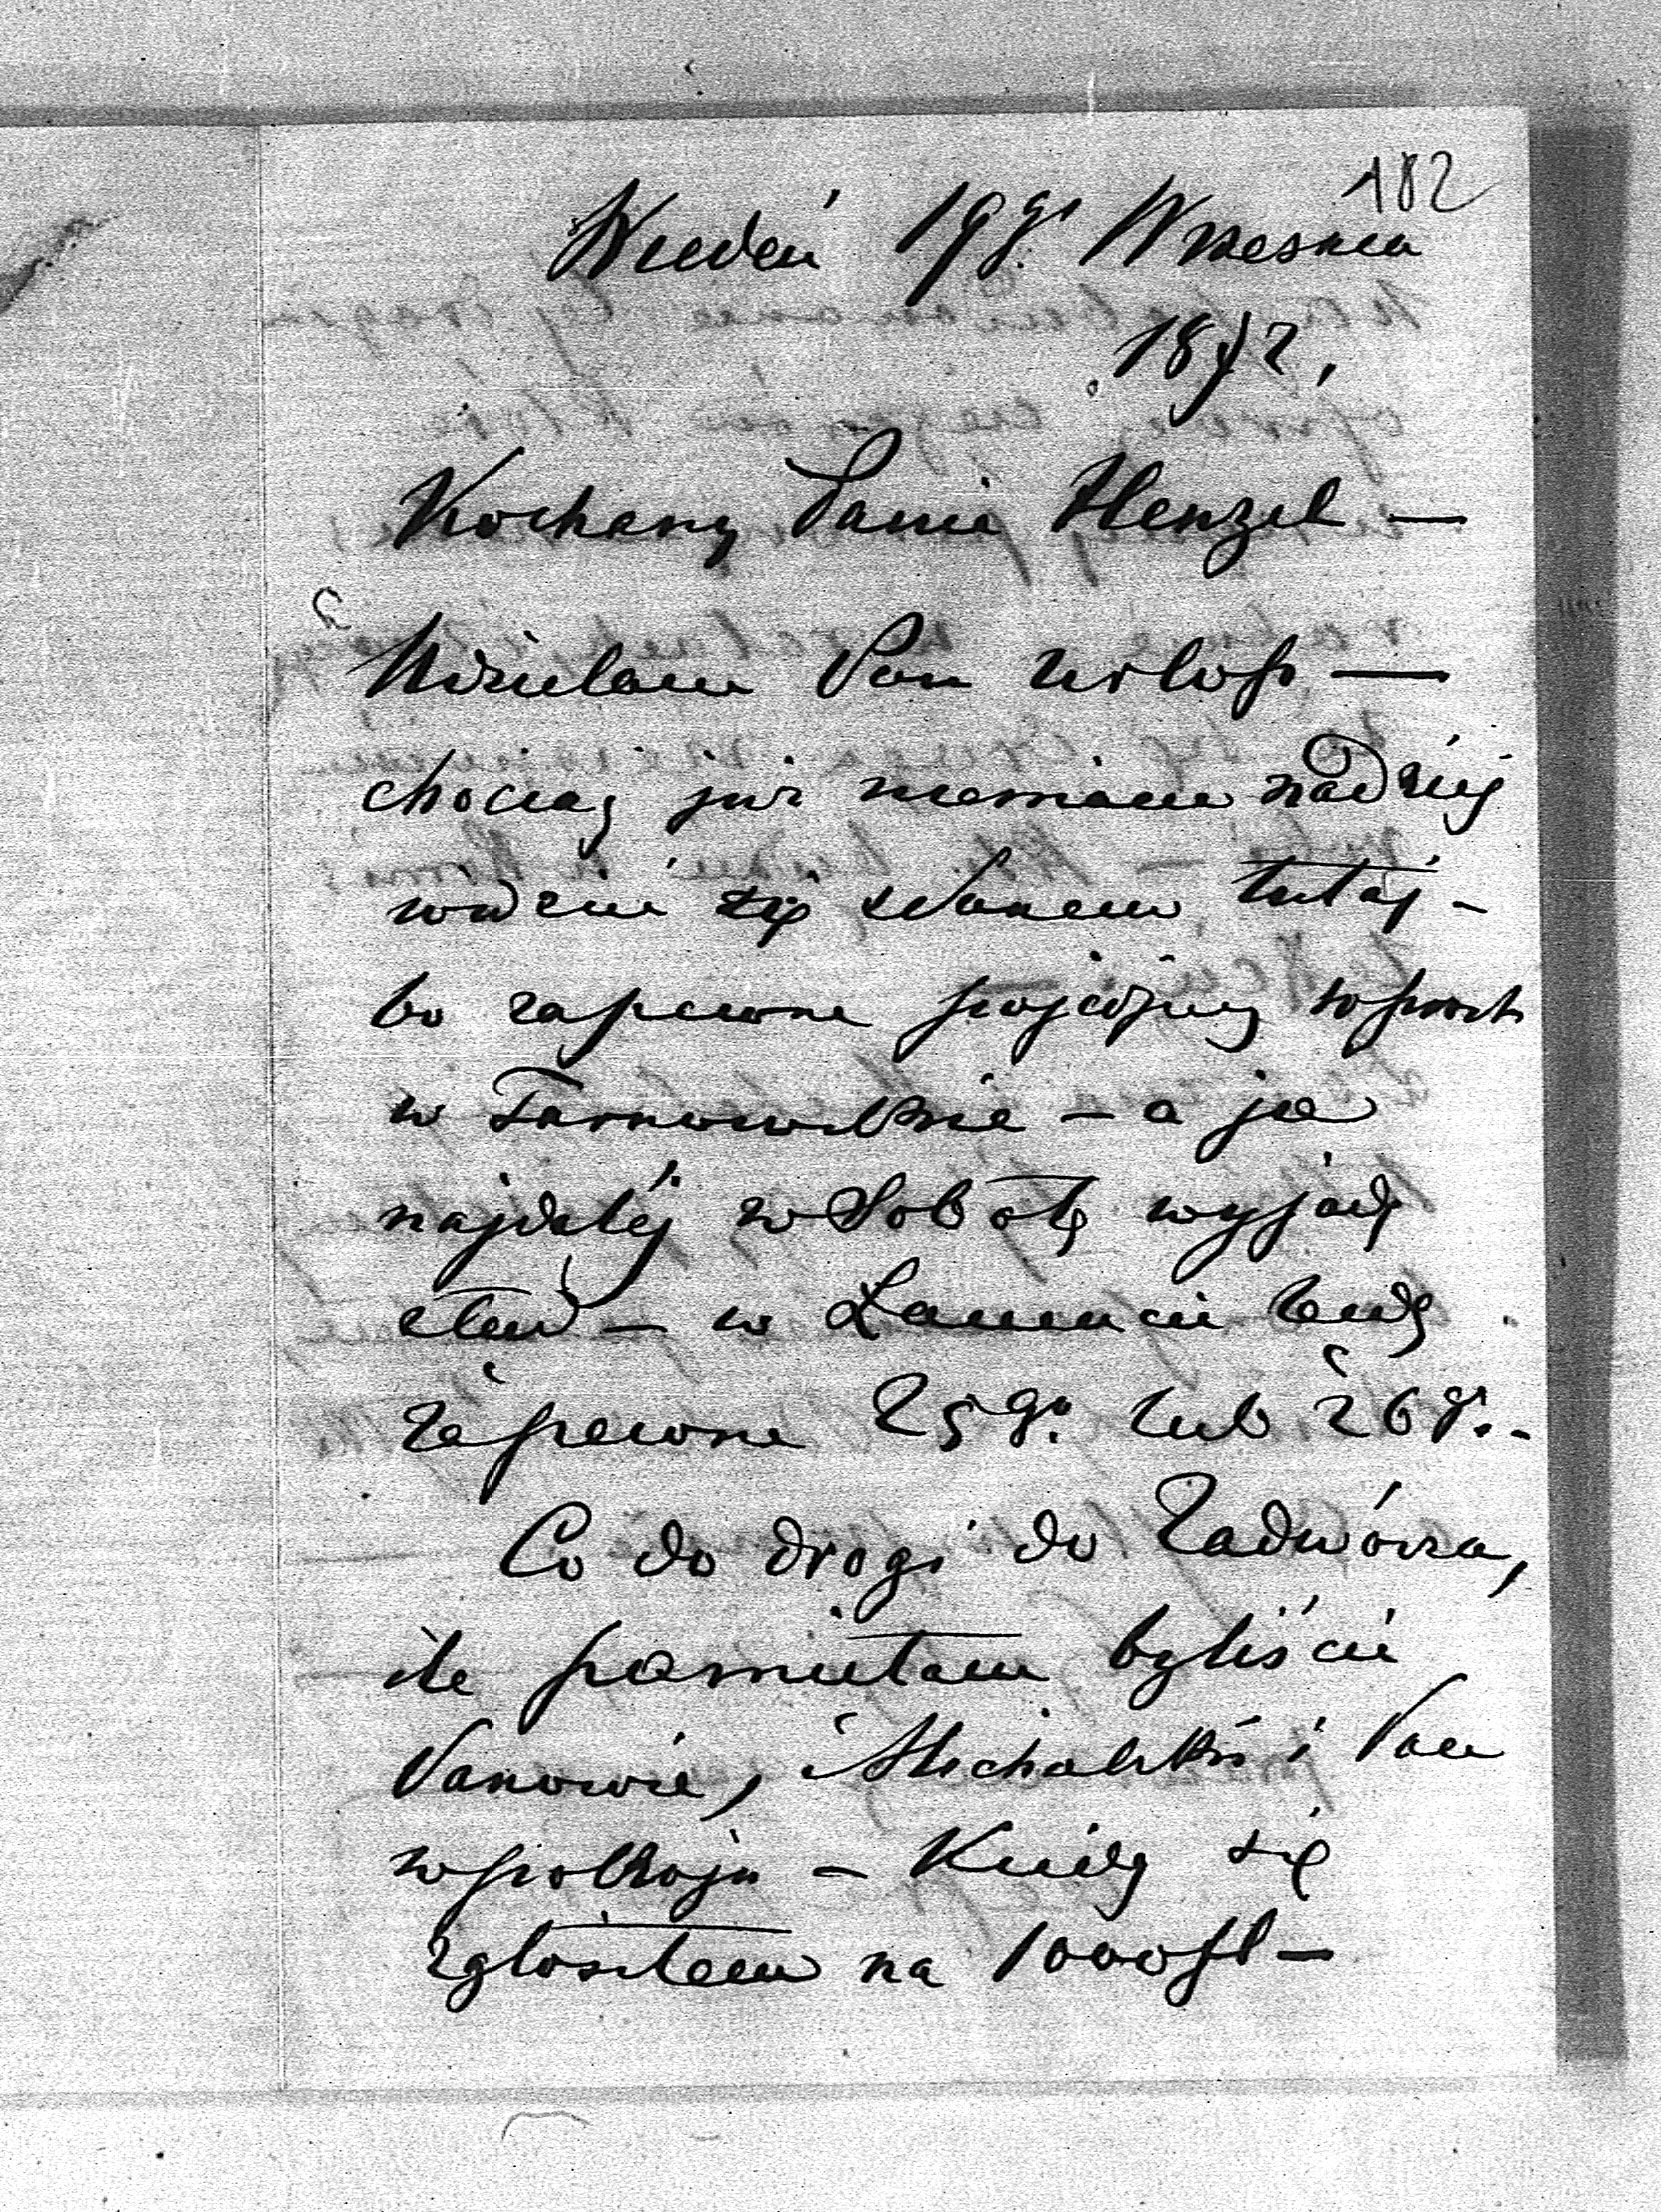 182
Wiedeń 19go Września
1872.
Kochany Panie Henzel —
Udzielam Panu urlop —
chociaż już niemiałem nadzieję
widzieć się z Panem tutaj —
bo zapewne pojedziesz wprost
w Tarnowskie — a ja
najdalej w Sobotę wyjadę
ztąd — w Łańcucie będę
zapewne 25go. lub 26go. —
Co do drogi do Zadwórza,
ile pamiętam byliście
Panowie, Michalski i Pan
w pokoju — Kiedy się
zgłosiłem na 1000 fl —